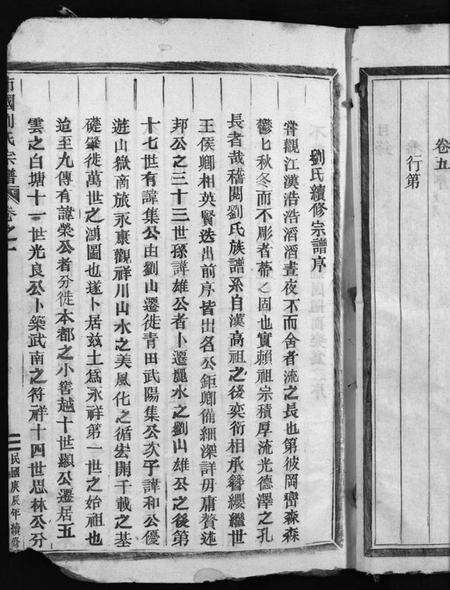 卷五
行第
劉氏續修宗譜序
嘗觀江漢浩浩滔滔晝夜不而舍者流之長也第彼岡巒森森
鬱匕秋冬而不彫者蒂之固也實賴祖宗積厚流光德澤之孔
長者哉稽閱劉氏族譜系自漢高祖之後奕衍相承簪纓繼世
王侯卿相英賢迭出前序皆出名公鉅卿備細深詳毋庸贅述
邦公之三十三世孫諱雄公者卜遷麗水之劉山雄公之後第
十七世有諱集公由劉山遷徙青田武陽集公次子諱和公優
遊山嶽商旅永康觀祥川山水之美風化之循宏開千載之基
礎肇徙萬世之鴻圖也遂卜居兹土爲永祥第一世之始祖也
迨至九傳有諱榮公者分徙本都之小窖越十世顯公遷居五
雲之白塘十一世光良公卜築武南之符祥十四世思林公分
國劉氏宗譜
卷之一
民國庚辰年續修